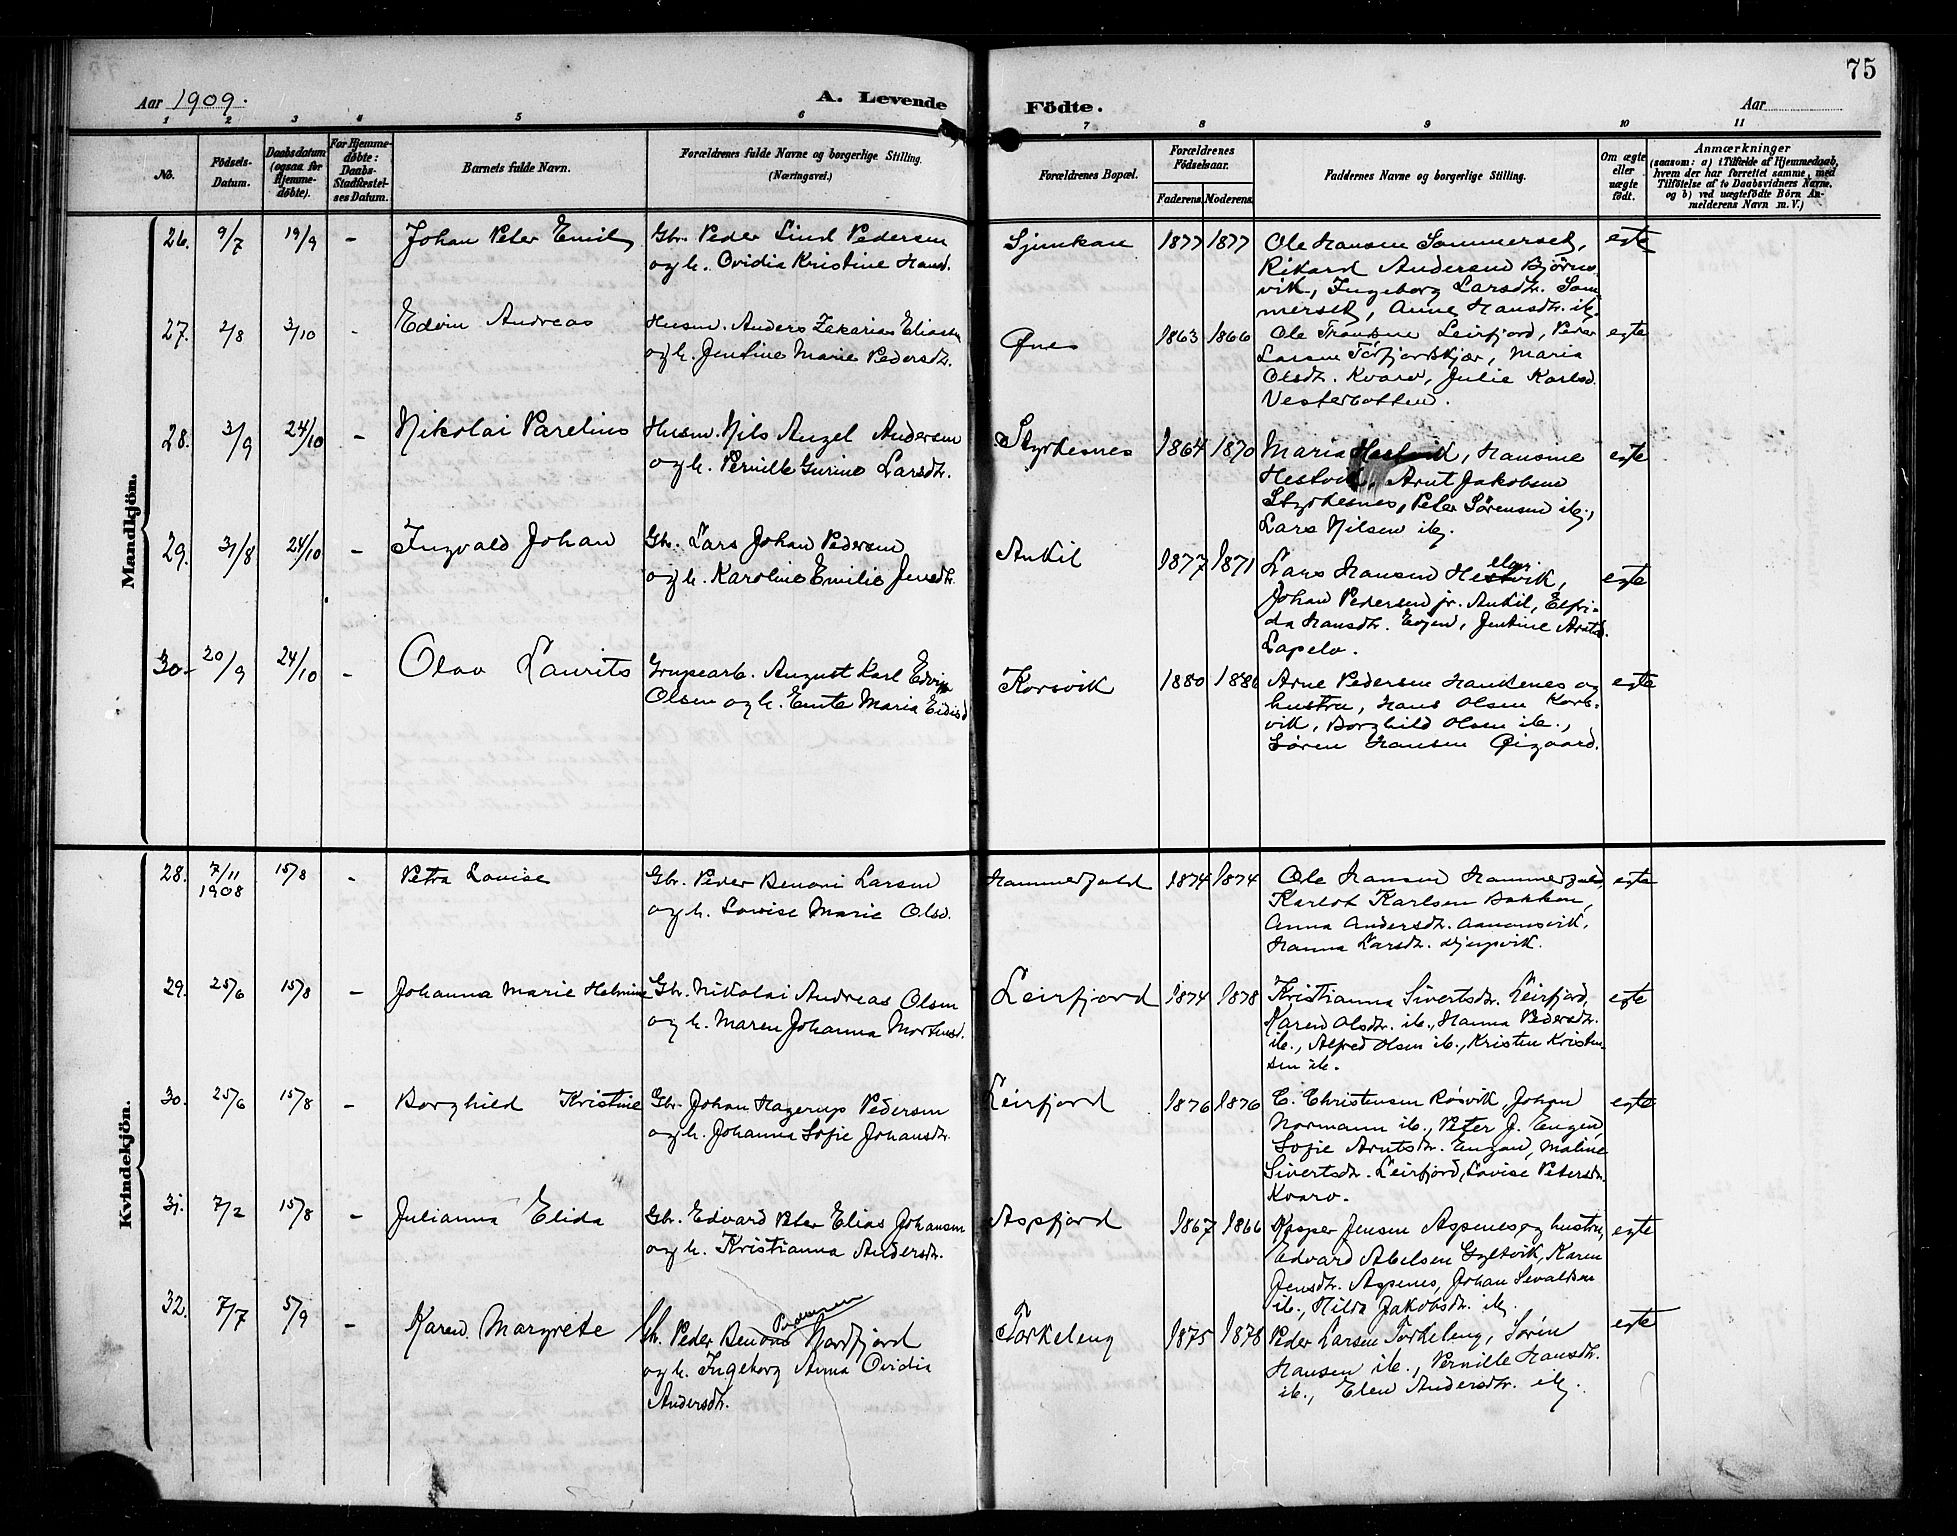 75
Aar 1909.
A. Levende
Födte.
Aar
1 2 3 4 5 6 7 8 9 10 11
No.
Födsels-
Datum.
Daabsdatum
(ogsaa for
Hjemme-
döbte).
For Hjemme-
döbte:
Daabs-
Stadfæstel-
ses Datum.
Barnets fulde Navn.
Forældrenes fulde Navne og borgerlige Stilling.
(Næringsvei.)
Forældrenes Bopæl.
Forældrenes
Födselsaar.
Faderens. Moderens.
Faddernes Navne og borgerlige Stilling.
Om ægte
eller
uægte
födt.
Anmærkninger
(saasom: a) i Tilfælde af Hjemmedaab,
hvem der har forrettet samme, med
Tilföielse af to Daabsvidners Navne,
og b) ved uægtefödte Börn An-
melderens Navn m. V.)
Mandkjön.
26. 9/7 19/9 - Johan Peter Emil
Gbr. Peder Lind Pedersen
og h. Ovidia Kristine Hansd.
1877 1877
Ole Hansen Sommerset,
Rikard Andersen Bjørns-
vik, Ingeborg Larsdtr. Som-
merset, Anne Hansdtr. ib.
egte
27. 2/8 3/10 - Edvin Andreas
Husm. Anders Zekarias Eliassen
og h. Jentine Marie Pedersdtr.
Ønes 1863 1866
Ole Leirfjord, Peder
Larsen Tørfjordskjær, Maria
Olsdtr. Kvarv, Julie Karlsd.
Vesterbotten.
egte
28. 3/9 24/10 - Nikolai Parelius
Husm. Nils Angel Andersen
og h. Pernille Gurine Larsdtr.
Styrkesnes 1864 1870
Maria Hestvik, Hansine
Hestvik, Arnt Jakobsen
Styrkesnes, Peter Sørensen ib.,
Lars Nilsen ib.
egte
29. 31/8 24/10 - Ingvald Johan
Gbr. Lars Johan Pedersen
og h. Karoline Emilie Jensdtr.
Ankil 1877 1871
Lars Hansen Hestvik,
Johan Pedersen jr. Ankil, Elfri-
da Hansdtr. Evjen, Jentine Arntsd.
Lapelv.
egte
30. 20/9 24/10 - Olav Laurits
Grupearb. August Karl Edvin
Olsen og h. Emte Maria Eidisd
Korsvik 1880 1886
Arne Pedersen Haukenes og
hustru, Hans Olsen Kors-
vik, Borghild Olsen ib.,
Søren Hansen Øigaard.
egte
Kvindekjön.
28. 7/11 1908 15/8 - Petra Lovise
Gbr. Peder Benoni Larsen
og h. Lovise Marie Olsd.
Hammerfald 1874 1874
Ole Hansen Hammerfald,
Karlot Karlsen Bakken,
Anna Andersdtr. Aanonsvik,
Hanna Larsdtr. Djupvik.
egte
29. 25/6 15/8 - Johanna Marie Helmine
Gbr. Nikolai Andreas Olsen
og h. Maren Johanna Mortensd.
Leirfjord 1874 1878
Kristianna Sivertsdtr. Leirfjord,
Karen Olsdtr. ib., Hanna Pedersdtr.
ib., Alfred Olsen ib., Kristen Kristen-
sen ib.
egte
30. 25/6 15/8 - Borghild Kristine
Gbr. Johan Hagerup Pedersen
og h. Johanna Sofie Johansdtr.
Leirfjord 1876 1876
C. Christensen Røsvik, Johan
Normann ib., Peter J. Engan,
Sofie Arntsdtr. Engan, Maline
Sivertsdtr. Leirfjord, Lovise Petersdtr.
Kvarv.
egte
31. 7/2 15/8 - Julianna Elida
Gbr. Edvard Peter Elias Johansen
og h. Kristianna Andersdtr.
Aspfjord 1867 1866
Kasper Jensen Aspenes og hustru,
Edvard Abelsen Gyltvik, Karen
Jensdtr. Aspenes, Johan Sevaldsen
ib., Hilda Jakobsdtr. ib.
egte
32. 7/7 5/9 - Karen Margrete
Gbr. Peder Benoni Pedersen Nordfjord
og h. Ingeborg Anna Ovidia
Andersdtr.
Torkeleng 1875 1878
Peder Larsen Torkeleng, Søren
Hansen ib., Pernille Hansdtr.
ib., Elen Andersdtr. ib.
egte